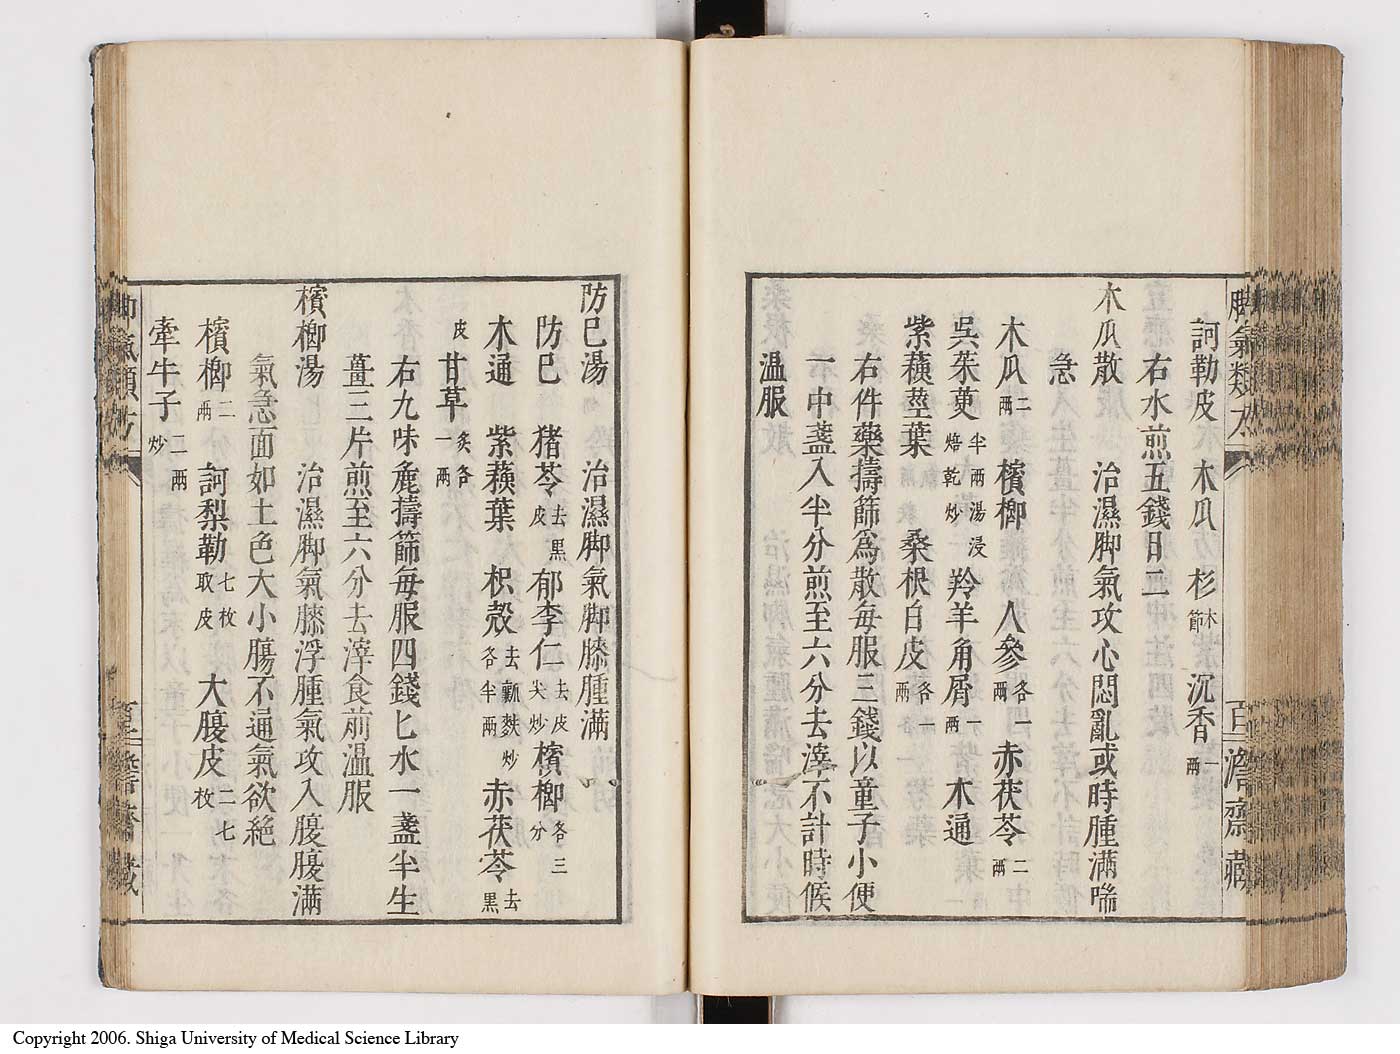 訶勒皮 木瓜 杉木節 沉香一兩
右水煎五錢日二
木瓜散 治濕脚氣攻心悶亂或時腫滿喘
急
木瓜二兩 檳榔 人參各一兩 赤茯苓二兩
吳茱萸半兩湯浸焙乾炒 羚羊角屑一兩 木通
紫蘓莖葉 桑根白皮各一兩
右件藥擣篩爲散每服三錢以童子小便
一中盞入半分煎至六分去滓不計時候
温服
防巳湯 治濕脚氣脚膝腫滿
防巳 猪苓去黑皮 郁李仁去皮尖炒 檳榔各三分
木通 紫蘓葉 枳殼去瓤麩炒各半兩 赤茯苓去黑
皮 甘草炙各一兩
右九味麁擣篩每服四錢匕水一盞半生
薑三片煎至六分去滓食前温服
檳榔湯 治濕脚氣膝浮腫氣攻入腹腹滿
氣急面如土色大小膓不通氣欲絶
檳榔二兩 訶梨勒七枚取皮 大腹皮二七枚
牽牛子二兩炒
脚氣類方
百一濟齋藏
Copyright 2006. Shiga University of Medical Science Library